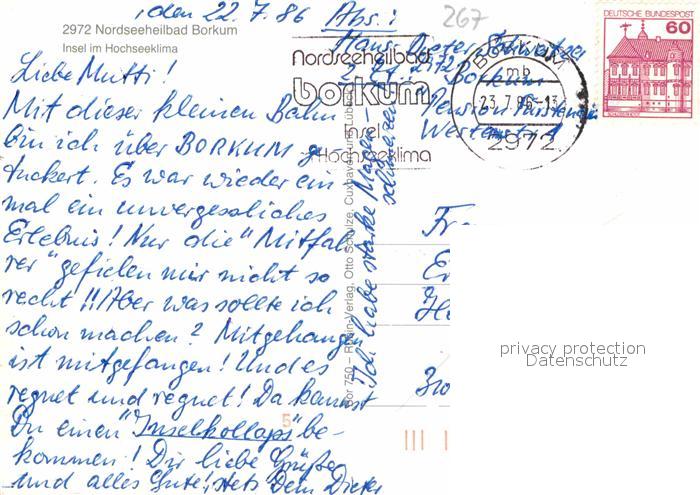 , den 22.7.86 Abs.:
267
2972 Nordseeheilbad Borkum
Insel im Hochseeklima
Liebe Mutti!
Mit dieser kleinen Bahn
bin ich über BORKUM ge-
tuckert. Es war wieder ein
mal ein unvergessliches
Erlebnis! Nur die "Mitfah
rer" gefielen mir nicht so
recht!! Aber was sollte ich
schon machen? Mitgehangen
ist mitgefangen! Und es
regnet und regnet! Da kannst
Du einen "Inselkollaps" be-
kommen! Dir liebe Grüße
und alles Gute! stets Dein Dieter
Ich habe starke Magen-
schmerzen
Bor 750 - Rhein-Verlag, Otto Schulze, Cuxhaven und Lübeck
Hans Dieter
2972 Borkum
Pension
Nordseeheilbad
borkum
Insel
Hochseeklima
BORKUM
mb
23.7.86-13
2972
DEUTSCHE BUNDESPOST
60
Fr-
5
privacy protection
Datenschutz